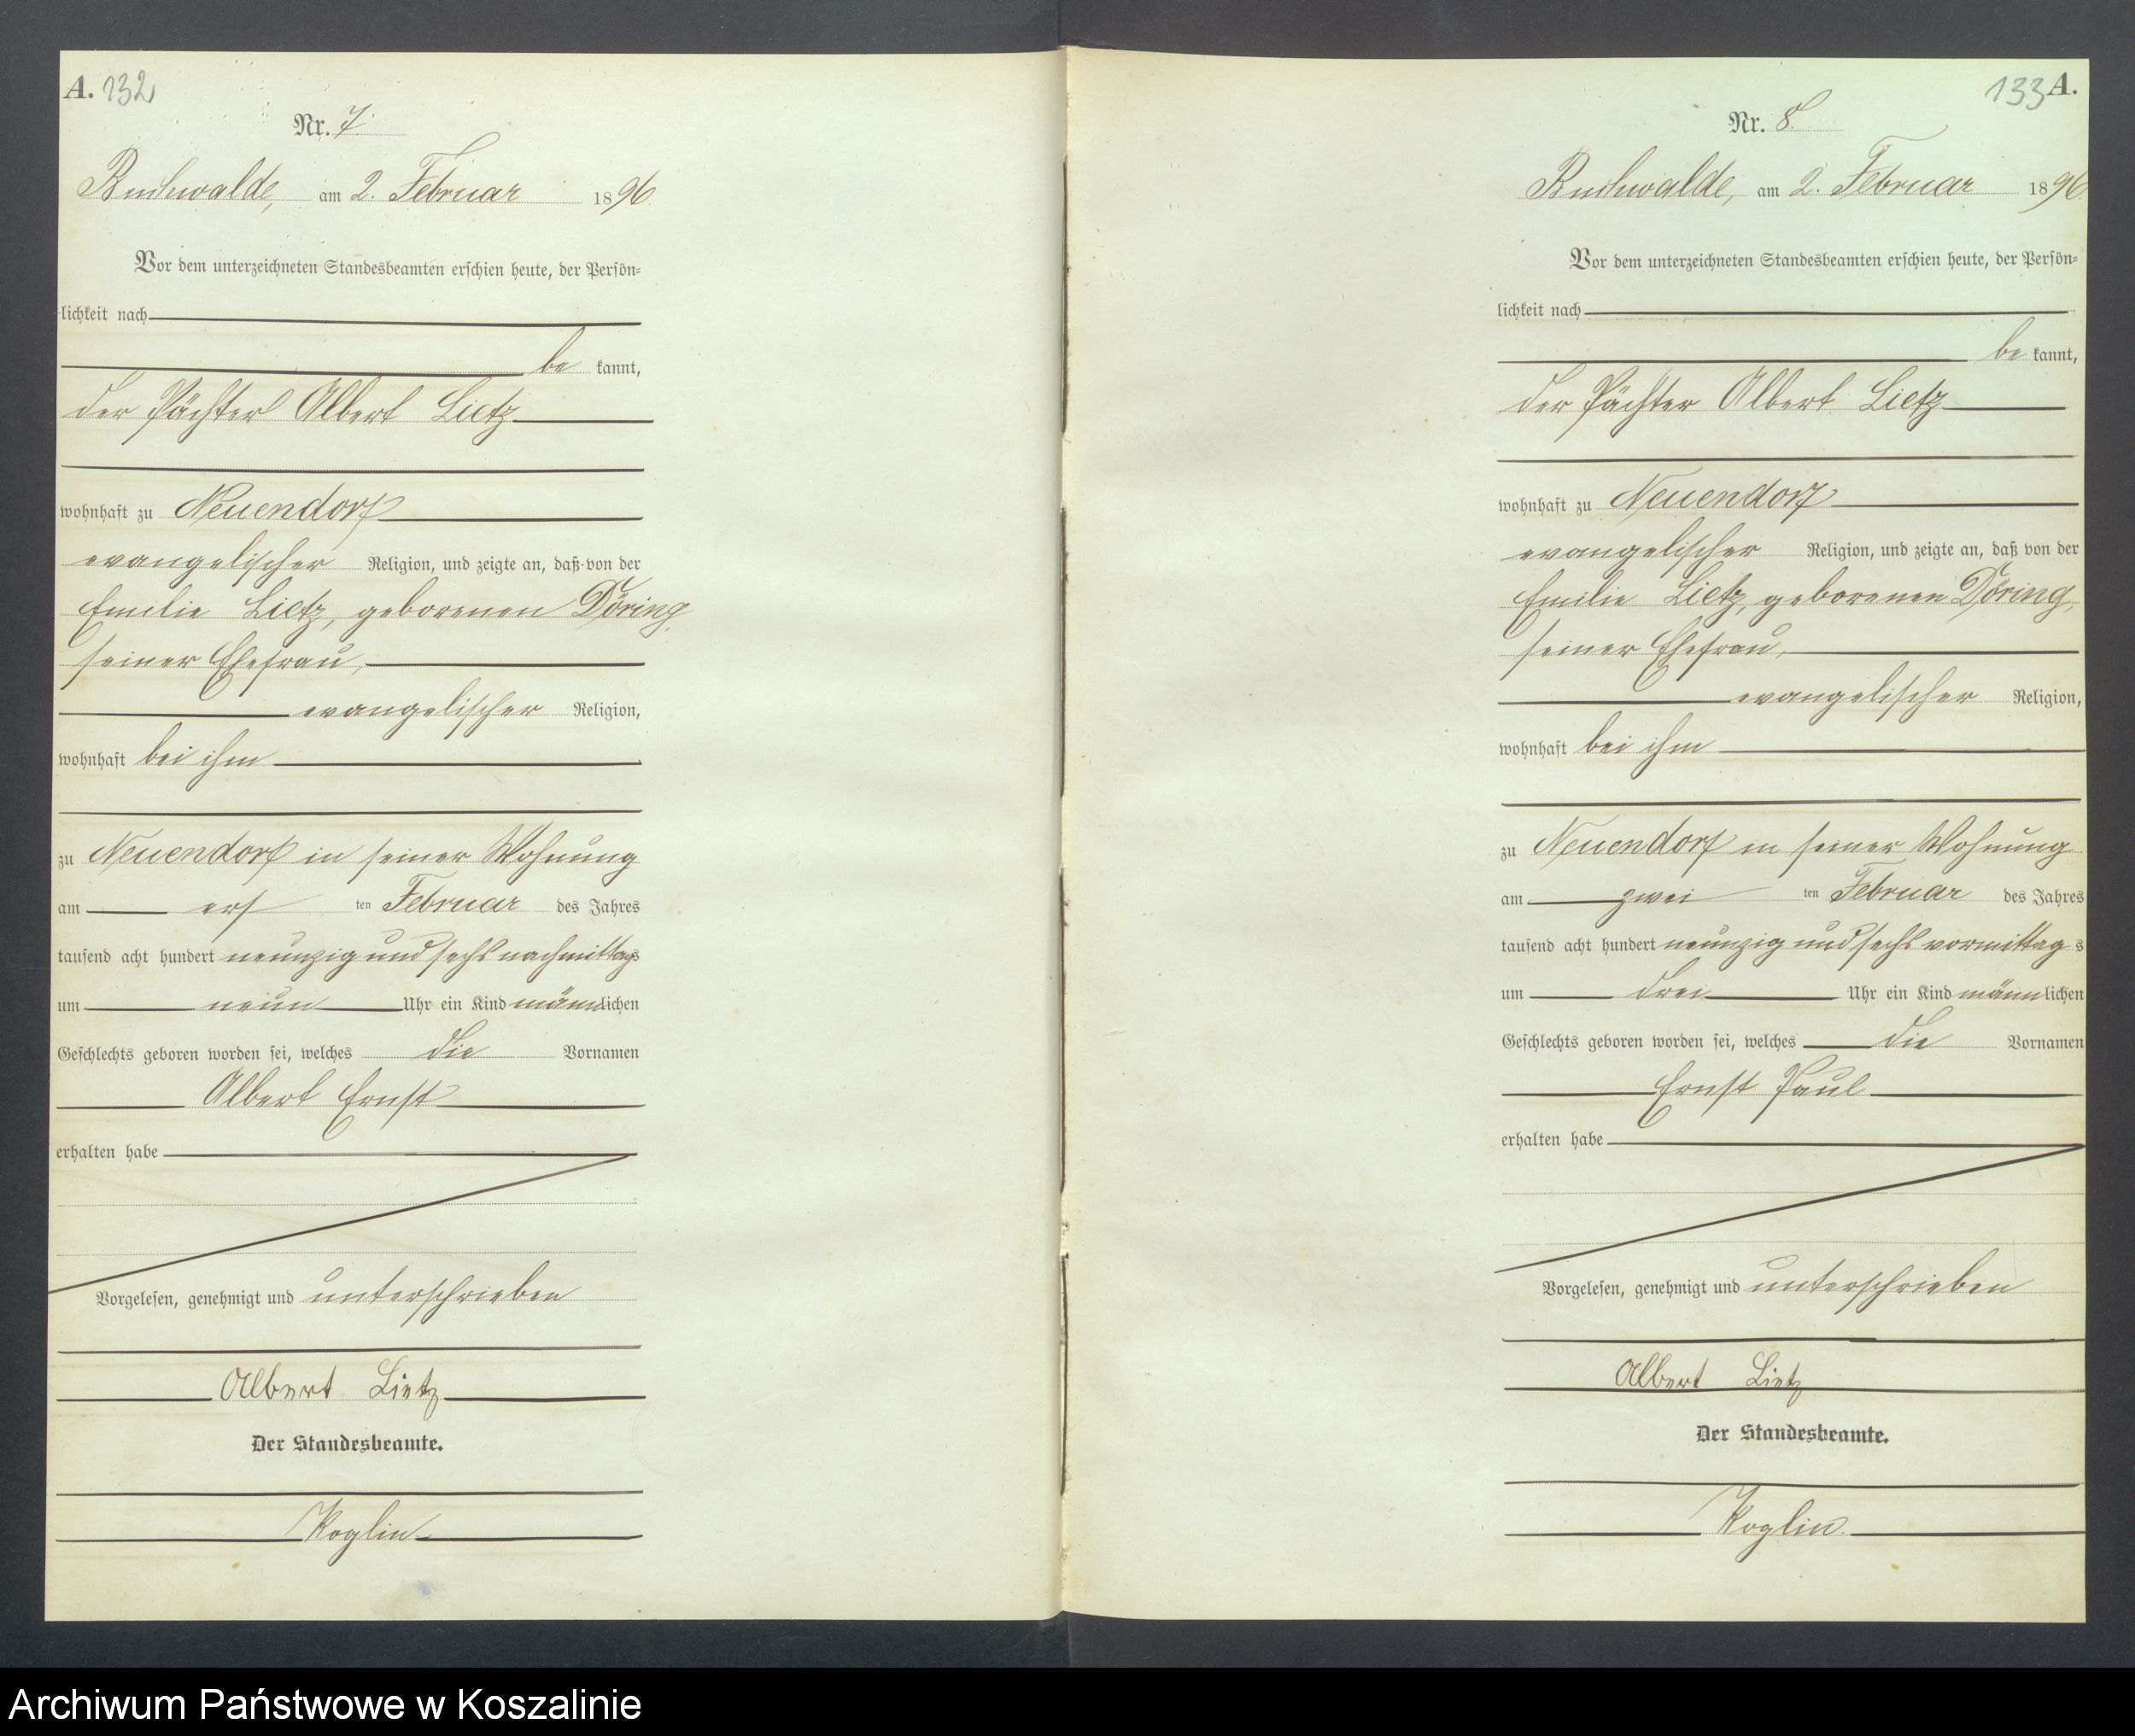 A. 132
Nr. 7.
Buchwalde, am 2. Februar 1896.
Vor dem unterzeichneten Standesbeamten erschien heute, der Persön-
lichkeit nach
be kannt,
der Pächter Albert Lietz
wohnhaft zu Neuendorf
evangelischer Religion, und zeigte an, daß von der
Emilie Lietz, geborenen Döring,
seiner Ehefrau,
evangelischer Religion,
wohnhaft bei ihm
zu Neuendorf in seiner Wohnung
am ers ten Februar des Jahres
tausend acht hundert neunzig und sechs nachmittags
um neun Uhr ein Kind männlichen
Geschlechts geboren worden sei, welches die Vornamen
Albert Ernst
erhalten habe
Vorgelesen, genehmigt und unterschrieben
Albert Lietz
Der Standesbeamte.
Koglin
133 A.
Nr. 8.
Buchwalde, am 2. Februar 1896.
Vor dem unterzeichneten Standesbeamten erschien heute, der Persön-
lichkeit nach
be kannt,
der Pächter Albert Lietz
wohnhaft zu Neuendorf
evangelischer Religion, und zeigte an, daß von der
Emilie Lietz, geborenen Döring,
seiner Ehefrau,
evangelischer Religion,
wohnhaft bei ihm
zu Neuendorf in seiner Wohnung
am zwei ten Februar des Jahres
tausend acht hundert neunzig und sechs vormittag s
um drei Uhr ein Kind männlichen
Geschlechts geboren worden sei, welches die Vornamen
Ernst Paul
erhalten habe
Vorgelesen, genehmigt und unterschrieben
Albert Lietz
Der Standesbeamte.
Koglin.
Archiwum Państwowe w Koszalinie